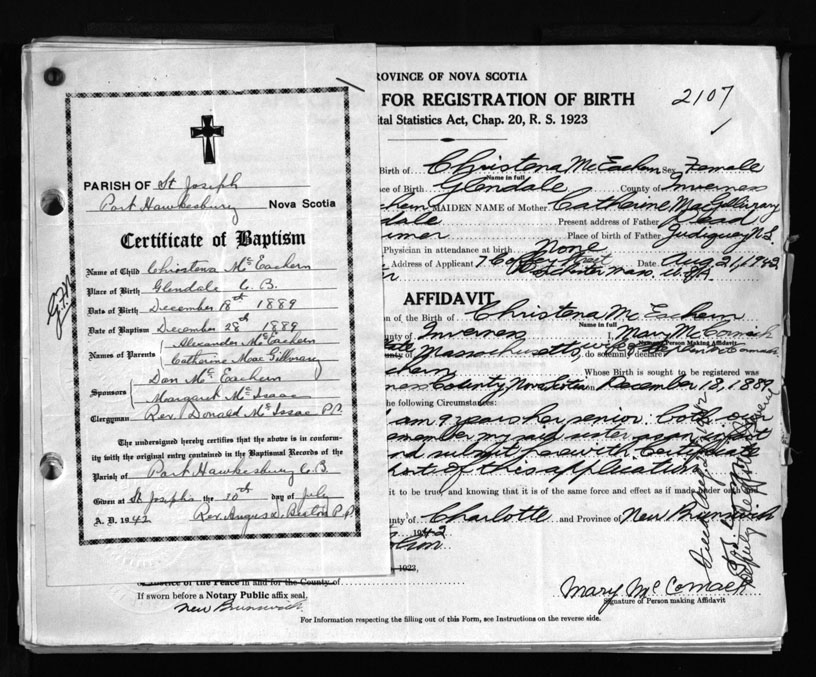 PARISH OF St Joseph
Port Hawkesbury Nova Scotia
Certificate of Baptism
Name of Child Christena McEachern
Place of Birth Glendale C. B.
Date of Birth December 18th 1889
Date of Baptism December 28th 1889
Names of Parents Alexander McEachern
Catherine Mac Gillivray
Sponsors Dan McEachern
Margaret McIsaac
Clergyman Rev. Donald McIsaac P.P.
The undersigned hereby certifies that the above is in conform-
ity with the original entry contained in the Baptismal Records of the
Parish of Port Hawkesbury C. B.
Given at St Josephs the 10th day of July
A. D. 1942 Rev. Angus P.P.
ROVINCE OF NOVA SCOTIA
FOR REGISTRATION OF BIRTH 2107
ital Statistics Act, Chap. 20, R. S. 1923
Birth of Christena McEachern Sex Female
Name in full
ce of Birth Glendale County of Inverness
chern MAIDEN NAME of Mother Catherine MacGillivray
dale Present address of Father Dead
rmer Place of birth of Father Judique N.S.
Physician in attendance at birth None
Address of Applicant 7 Date Aug 21, 1942
Worcester Mass. U.S.A.
AFFIDAVIT
on of the Birth of Christena McEachern
Name in full
unty of Inverness I, Mary McCormack
Name of Person Making Affidavit
of Massachusetts, wife of McCormack do solemnly declare
chern Whose Birth is sought to be registered was
ness County, Nova Scotia on December 18, 1889
he following Circumstances:
I am 9 years her senior. Both own
emember my said sister
nd submit herewith Certificate
of this application
it to be true, and knowing that it is of the same force and effect as if made under oath
unty of Charlotte and Province of New Brunswick
1942
1923,
A Justice of the Peace in and for the County of
If sworn before a Notary Public affix seal.
New Brunswick
Mary McCormack
Signature of Person making Affidavit
For Information respecting the filling out of this Form, see Instructions on the reverse side.